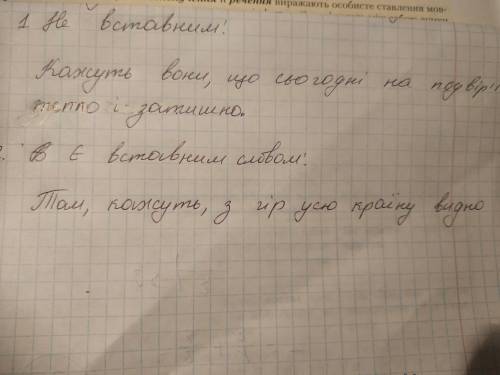 речення виражають особисте ставлення мов-
1 Не вставним:
Кажуть вони, що сьогодні на подвір'ї
тепло і затишно.
Є вставним словом:
Там, кажуть, з гір усю країну видно